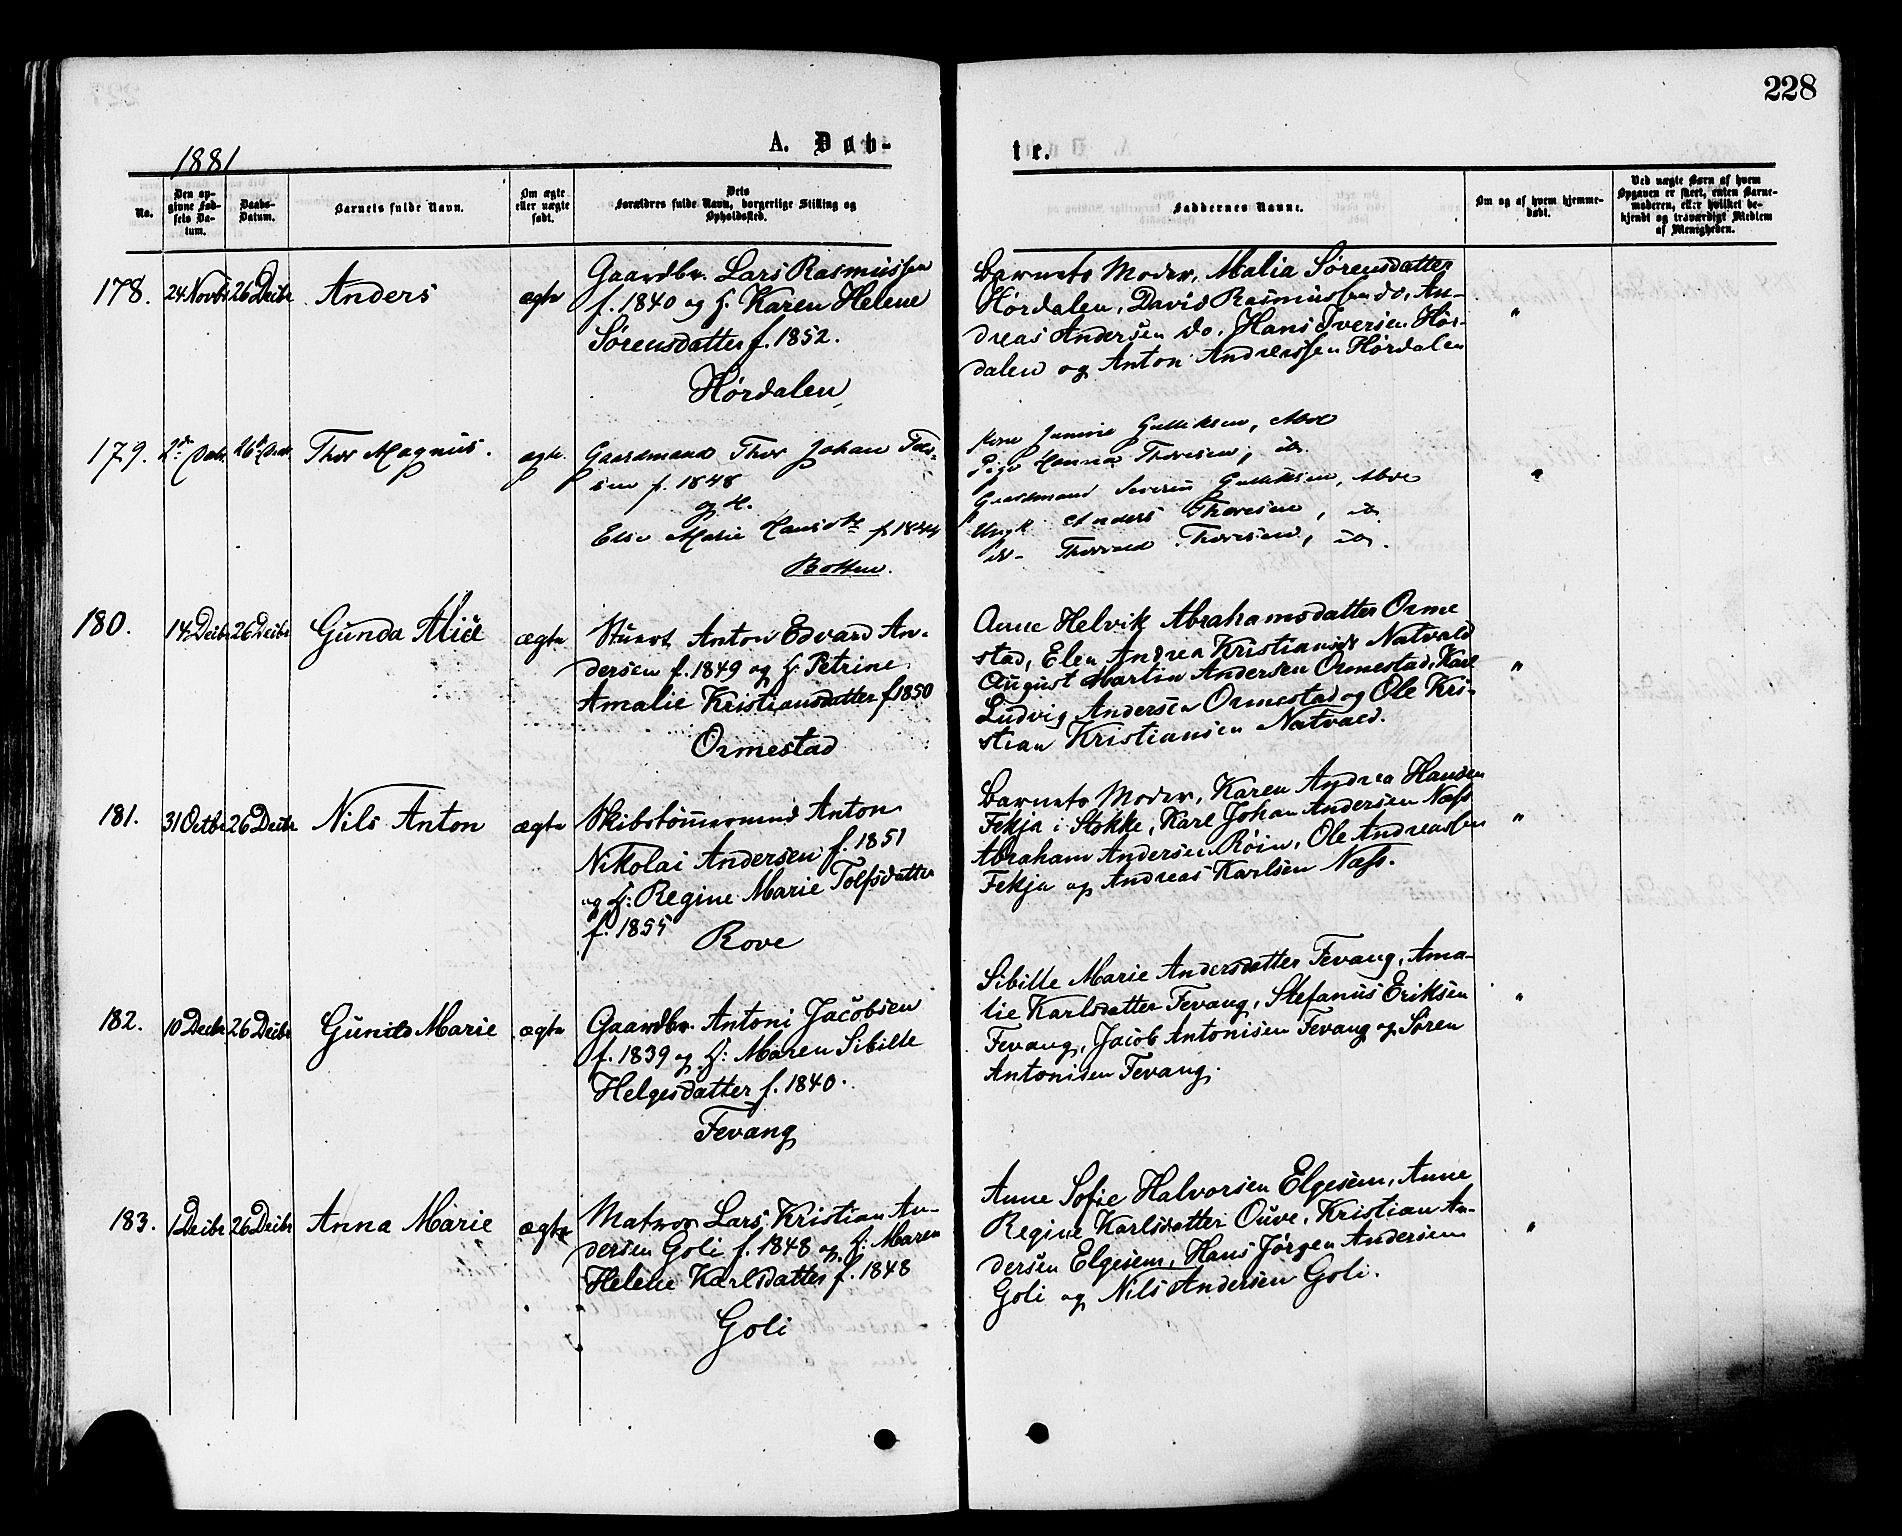 228
1881
A. Døb-
te.
No.
Den op-
givne Fød-
sels Da-
tum.
Daabs-
Datum.
Barnets fulde Navn.
Om ægte
eller uægte
født.
Dets
Forældres fulde Navn, borgerlige Stilling og
Opholdssted.
Faddernes Navne.
Om og af hvem hjemme-
døbt.
Ved uægte Børn af hvem
Opgaven er skeet, enten Barne-
moderen, eller hvilket be-
kjendt og troværdigt Medlem
af Menigheden.
178.
24 Novbr
26 Decbr
Anders
ægte
Gaardbr. Lars Rasmussen
f. 1840 og H. Karen Helene
Sørensdatter f. 1852.
Hørdalen
Barnets Moder, Malia Sørensdatter
Hørdalen, David Rasmussen do, An-
dreas Andersen do, Hans Iversen Hør-
dalen og Anton Andreassen Hørdalen
"
179.
2den Decb.
26de Decb.
Thor Magnus.
ægte.
Gaardmand Thor Johan
f. 1848
og H.
Else Marie Hansdtr f 1844
Kone Gulliksen,
Pige Hanna Thoresen, ib.
Gaardmand Severin Gulliksen,
Ungk. Anders Thoresen, ib.
do Thorvald Thoresen, ib.
"
180.
14 Decbr
26 Decbr
Gunda Alice
ægte
Stuert Anton Edvard An-
dersen f. 1849 og H. Petrine
Amalie Kristiansdatter f. 1850
Ormestad
Anne Helvik Abrahamsdatter Orme
stad, Elen Andrea Kristiansdr Natvald
August Martin Andersen Ormestad, Karl
Ludvig Andersen Ormestad og Ole Kri-
stian Kristiansen Natvald.
"
181.
31 Octbr
26 Decbr
Nils Anton
ægte
Skibstømmermand Anton
Nikolai Andersen f. 1851
og H: Regine Marie Tolfsdatter
f. 1855
Rove
Barnets Moder, Karen Andrea Hansen
Fekja i Stokke, Karl Johan Andersen Næss
Abraham Andersen Röin, Ole Andreassen
Fekja og Andreas Karlsen Næss.
"
182.
10 Decbr
26 Decbr
Gunda Marie
ægte
Gaardbr. Antoni Jacobsen
f. 1839 og H: Maren Sibille
Helgesdatter f. 1840.
Fevang
Sibille Marie Andersdatter Fevang, Ama-
lie Karlsdatter Fevang, Stefanus Eriksen
Fevang, Jacob Antonisen Fevang og Søren
Antonisen Fevang.
"
183.
1 Decbr
26 Decbr
Anna Marie
ægte
Matros Lars Kristian An-
dersen Goli f. 1848 og H: Maren
Helene Karlsdatter f. 1848
Goli
Anne Sofie Halvorsen Elgesem, Anne
Regine Karlsdatter Ouve, Kristian An-
dersen Elgesem, Hans Jørgen Andersen
Goli og Nils Andersen Goli.
"